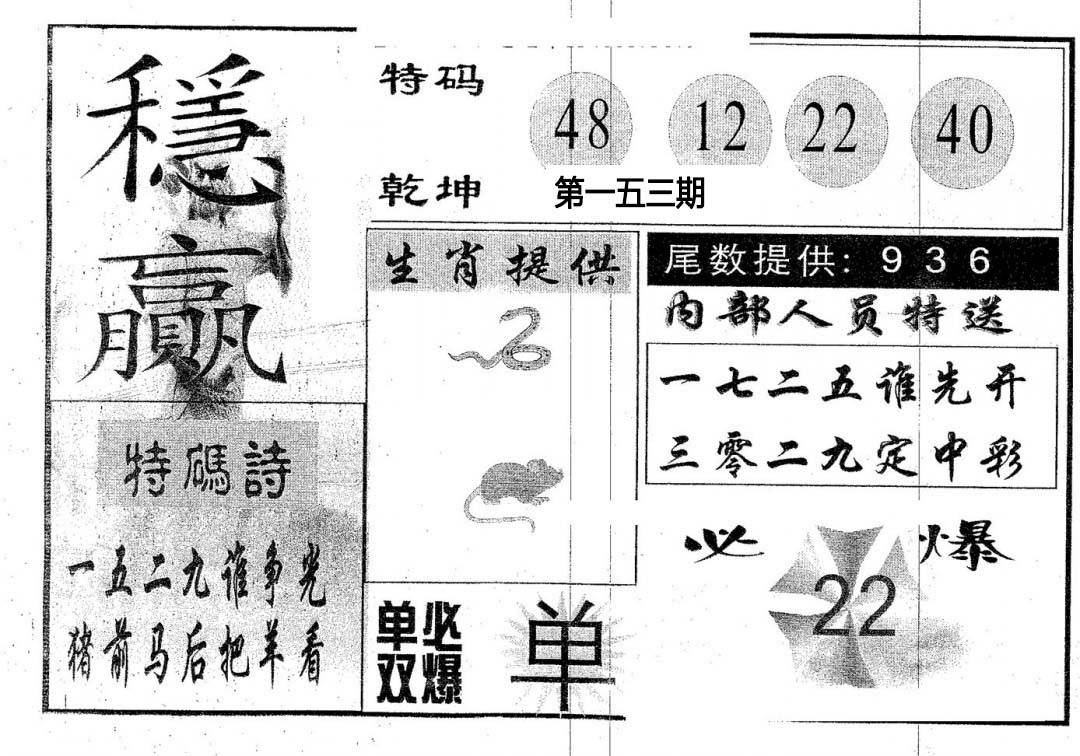 穩贏
特码 48 12 22 40
乾坤 第一五三期
生肖提供
尾数提供: 9 3 6
内部人员特送
一七二五谁先开
三零二九定中彩
特碼詩
一五二九谁争光
猪前马后把羊看
单双必爆 单
必爆 22